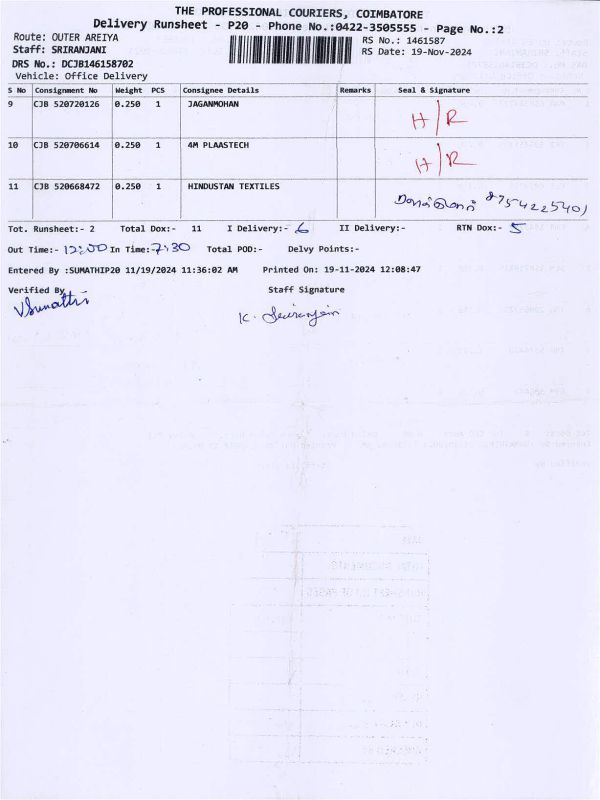 THE PROFESSIONAL COURIERS, COIMBATORE
Delivery Runsheet - P20 - Phone No.:0422-3505555 - Page No.:2
Route: OUTER AREIYA
RS No.: 1461587
Staff: SRIRANJANI
RS Date: 19-Nov-2024
DRS No.: DCJB146158702
Vehicle: Office Delivery
S No Consignment No Weight PCS Consignee Details Remarks Seal & Signature
9 CJB 520720126 0.250 1 JAGANMOHAN H/R
10 CJB 520706614 0.250 1 4M PLAASTECH H/R
11 CJB 520668472 0.250 1 HINDUSTAN TEXTILES 8754225401
Tot. Runsheet:- 2 Total Dox:- 11 I Delivery:- 6 II Delivery:- RTN Dox:- 5
Out Time:- 12:00 In Time:- 7:30 Total POD:- Delvy Points:-
Entered By :SUMATHIP20 11/19/2024 11:36:02 AM Printed On: 19-11-2024 12:08:47
Verified By Staff Signature
VSumathi K. Sriranjani